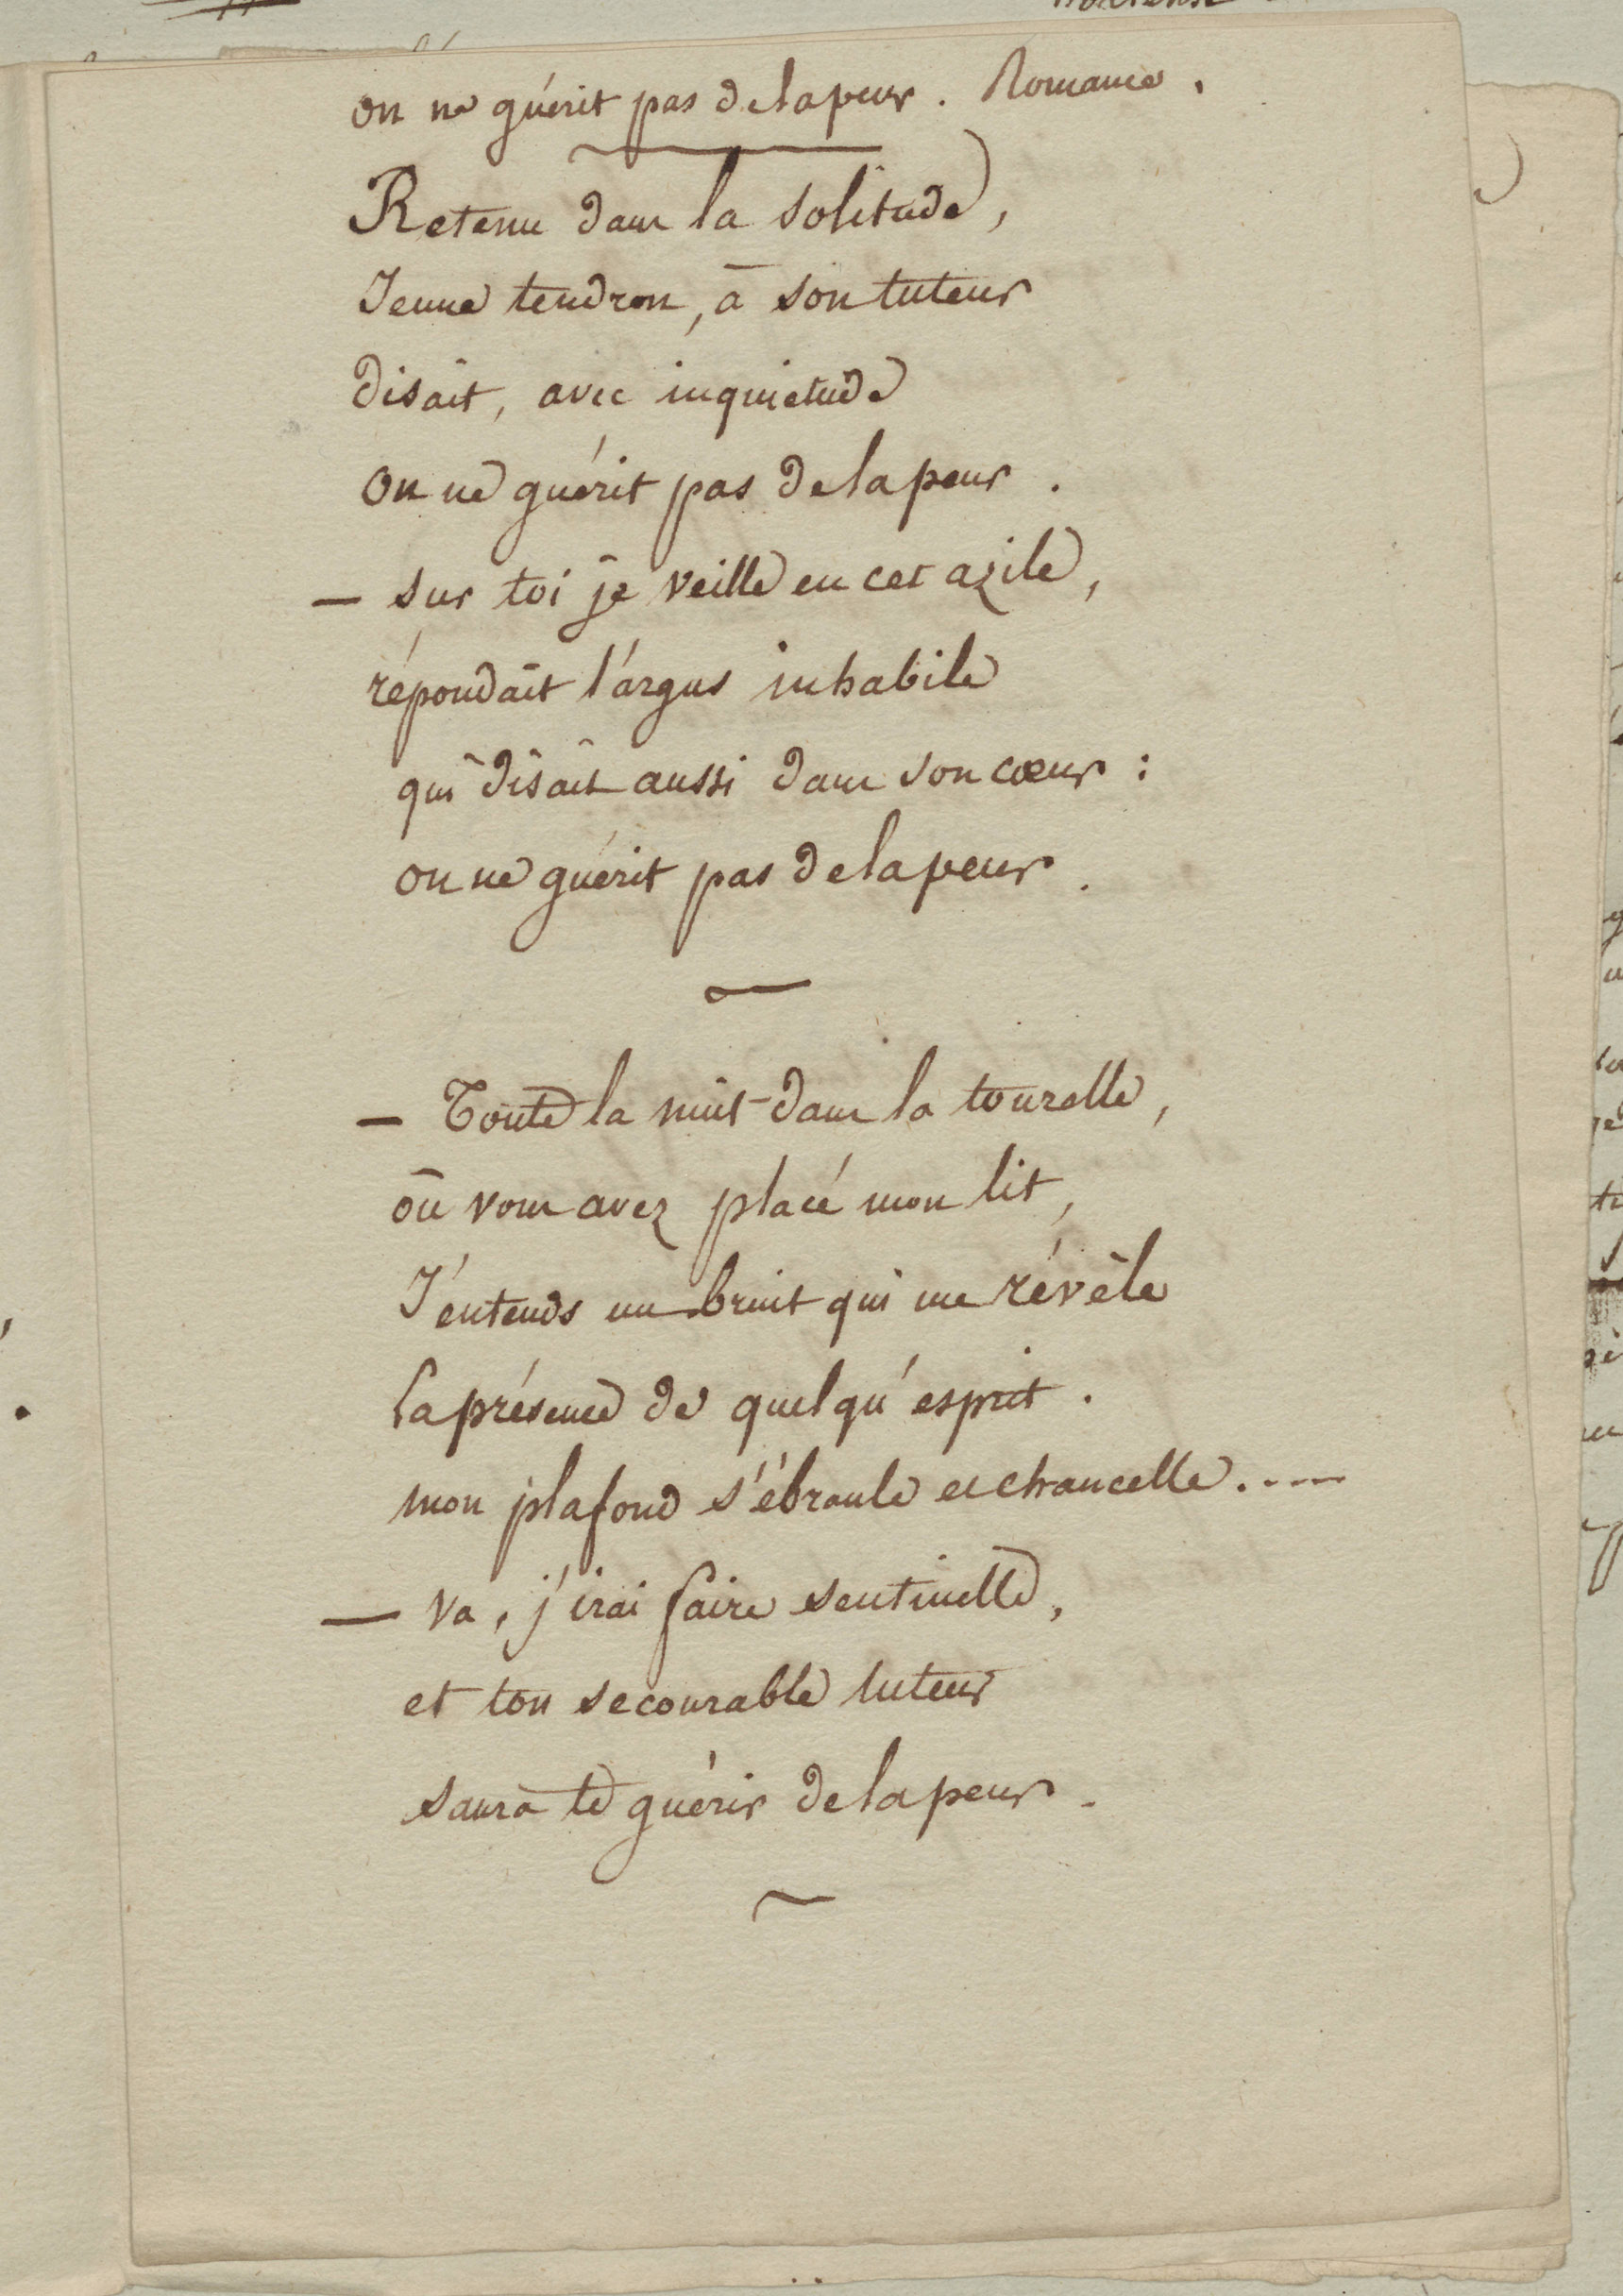 on ne guérit pas de la peur. Romance.
Retenu dans la solitude,
Jeune tendron, à son tuteur
disait, avec inquietude
On ne guérit pas de la peur.
— sur toi je veille en cet azile,
répondait l'argus inhabile
qui disait aussi dans son cœur :
on ne guérit pas de la peur.
— Toute la nuit dans la tourelle,
où vous avez placé mon lit,
J'entends un bruit qui me révèle
la présence de quelqu'esprit.
mon plafond s'ébranle et chancelle.....
— va, j'irai faire sentinelle,
et ton secourable tuteur
saura te guérir de la peur.